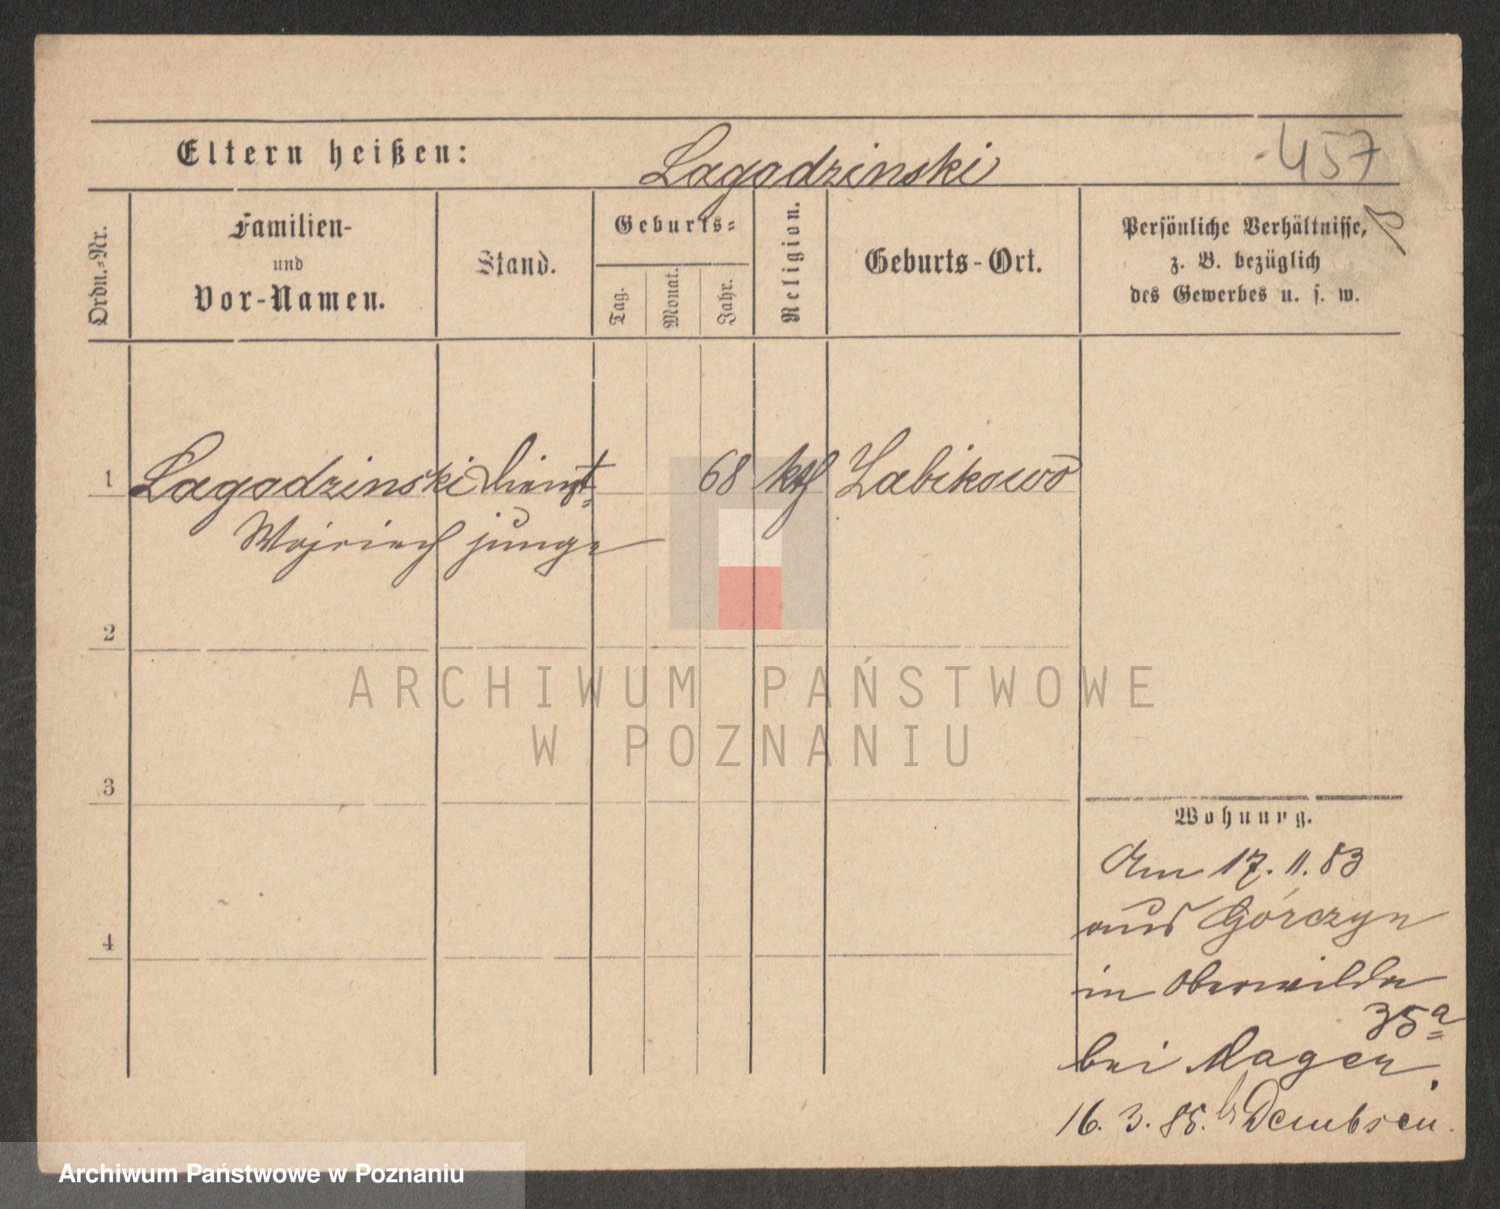 457
Eltern heißen: Lagodzinski
Ordn.=Nr.
Familien-
und
Vor-Namen.
Stand.
Geburts=
Tag.
Monat.
Jahr.
Religion.
Geburts-Ort.
Persönliche Verhältnisse,
z. B. bezüglich
des Gewerbes u. s. w.
1 Lagodzinski Dienst= 68 kth Zabikowo
Wojciech junge
2
ARCHIWUM PAŃSTWOWE
W POZNANIU
3
Wohnung.
Am 17. 11. 83
aus Górczyn
in Oberwilda
35a
bei Mager.
4
16. 3. 85. Dembsen.
Archiwum Państwowe w Poznaniu